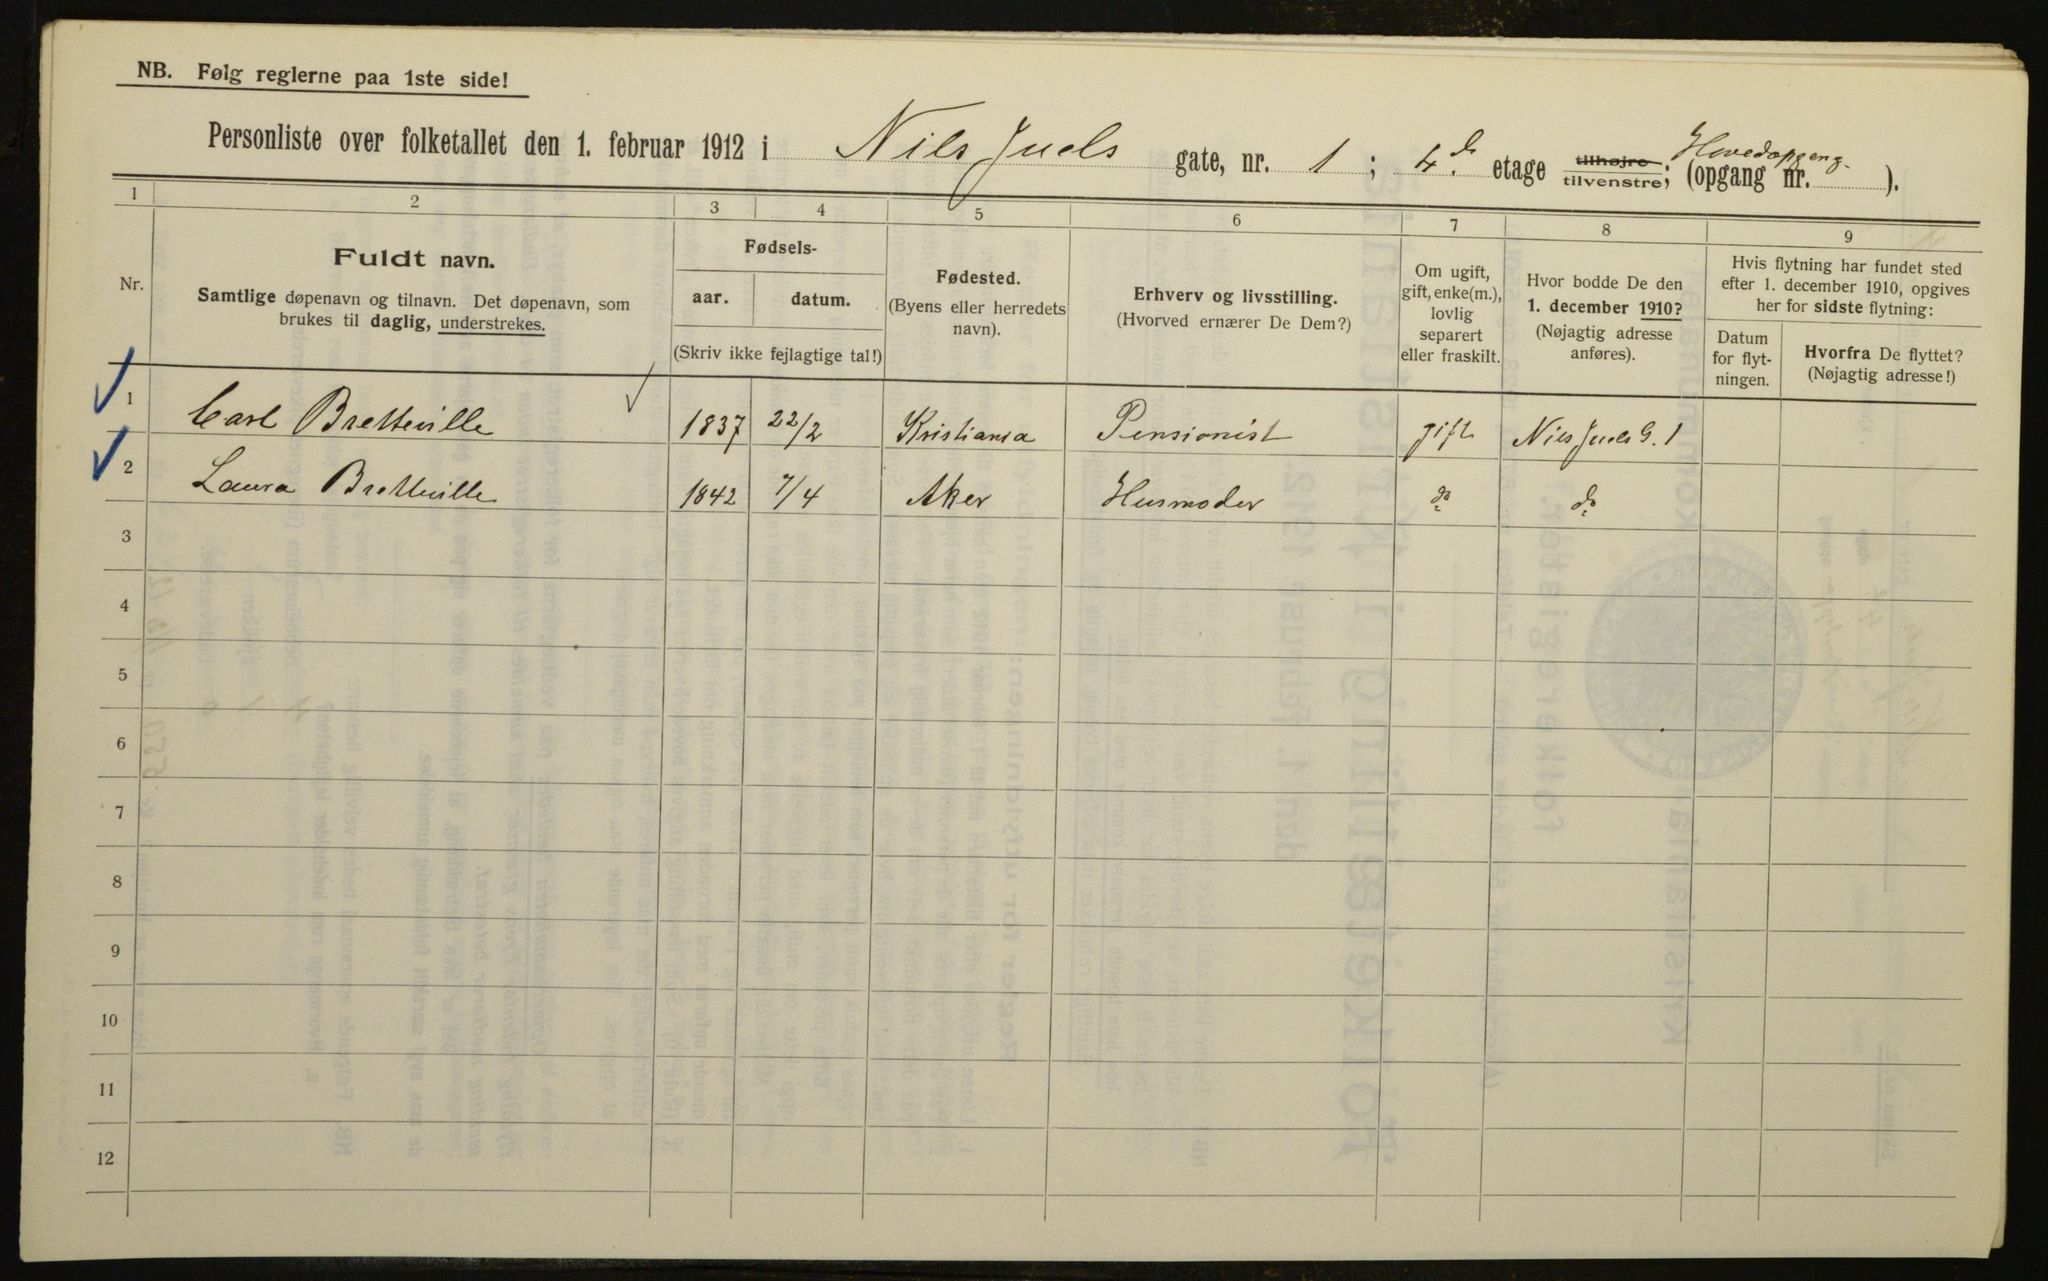 NB. Følg reglerne paa 1ste side!
Personliste over folketallet den 1. februar 1912 i Nils Juels gate, nr. 1 ; 4de. etage tilhøjre tilvenstre; (opgang nr. Hovedopgang. ).
1 2 3 4 5 6 7 8 9
Nr.
Fuldt navn.
Samtlige døpenavn og tilnavn. Det døpenavn, som
brukes til daglig, understrekes.
Fødsels-
aar. datum.
(Skriv ikke fejlagtige tal!)
Fødested.
(Byens eller herredets
navn).
Erhverv og livsstilling.
(Hvorved ernærer De Dem?)
Om ugift,
gift, enke(m.),
lovlig
separert
eller fraskilt.
Hvor bodde De den
1. december 1910?
(Nøjagtig adresse
anføres).
Hvis flytning har fundet sted
efter 1. december 1910, opgives
her for sidste flytning:
Datum
for flyt-
ningen.
Hvorfra De flyttet?
(Nøjagtig adresse!)
1 Carl Bretteville 1837 22/2 Kristiania Pensionist gift Nils Juels G. 1
2 Laura Bretteville 1842 7/4 Aker Husmoder do do
3
4
5
6
7
8
9
10
11
12